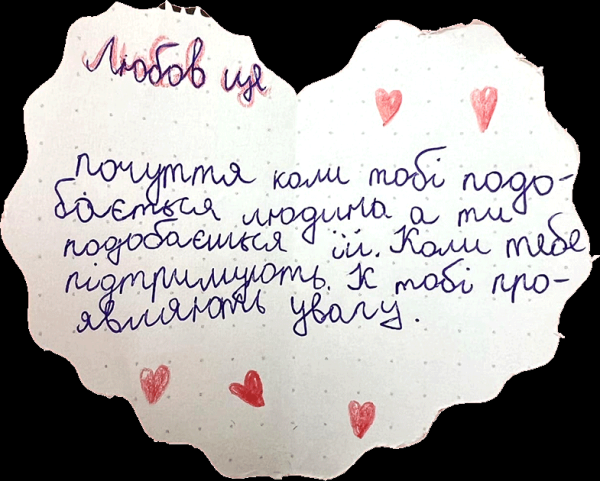 Любов це
почуття коли тобі подо-
бається людина а ти
подобаєшься їй. Коли тебе
підтримують. К тобі про-
являють увагу.